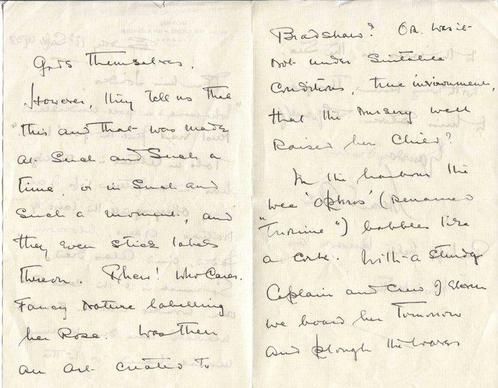 Gods themselves.
However, they tell us that
"this and that was made
at such and such a
time, or in such and
such a moment, and
they even stick labels
thereon. Phew! Who cares.
Fancy Nature labelling
her Rose. Was then
an art created to
Bradshaw? Or was it
not under suitable
conditions, true environment,
that the nursing
her Child?
In the harbour the
wee 'Ophris' (renamed
") bobbles like
a cork. With a sturdy
Captain and Crew of eleven
we board her Tomorrow
and plough the waves